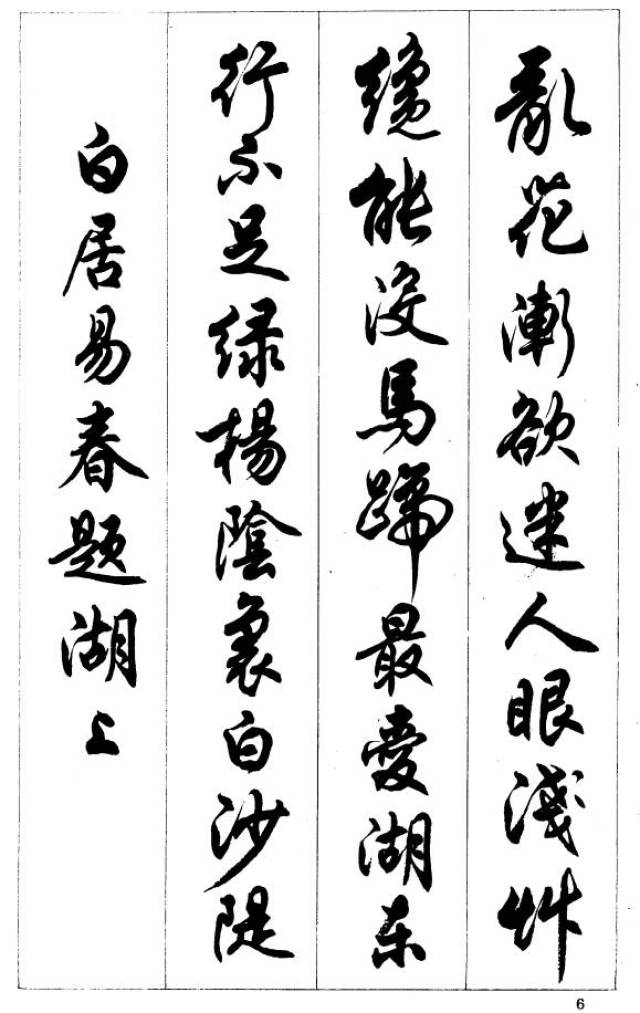 亂花漸欲迷人眼淺艸
纔能沒馬蹄最愛湖东
行不足绿楊陰裏白沙隄
白居易春题湖上
6